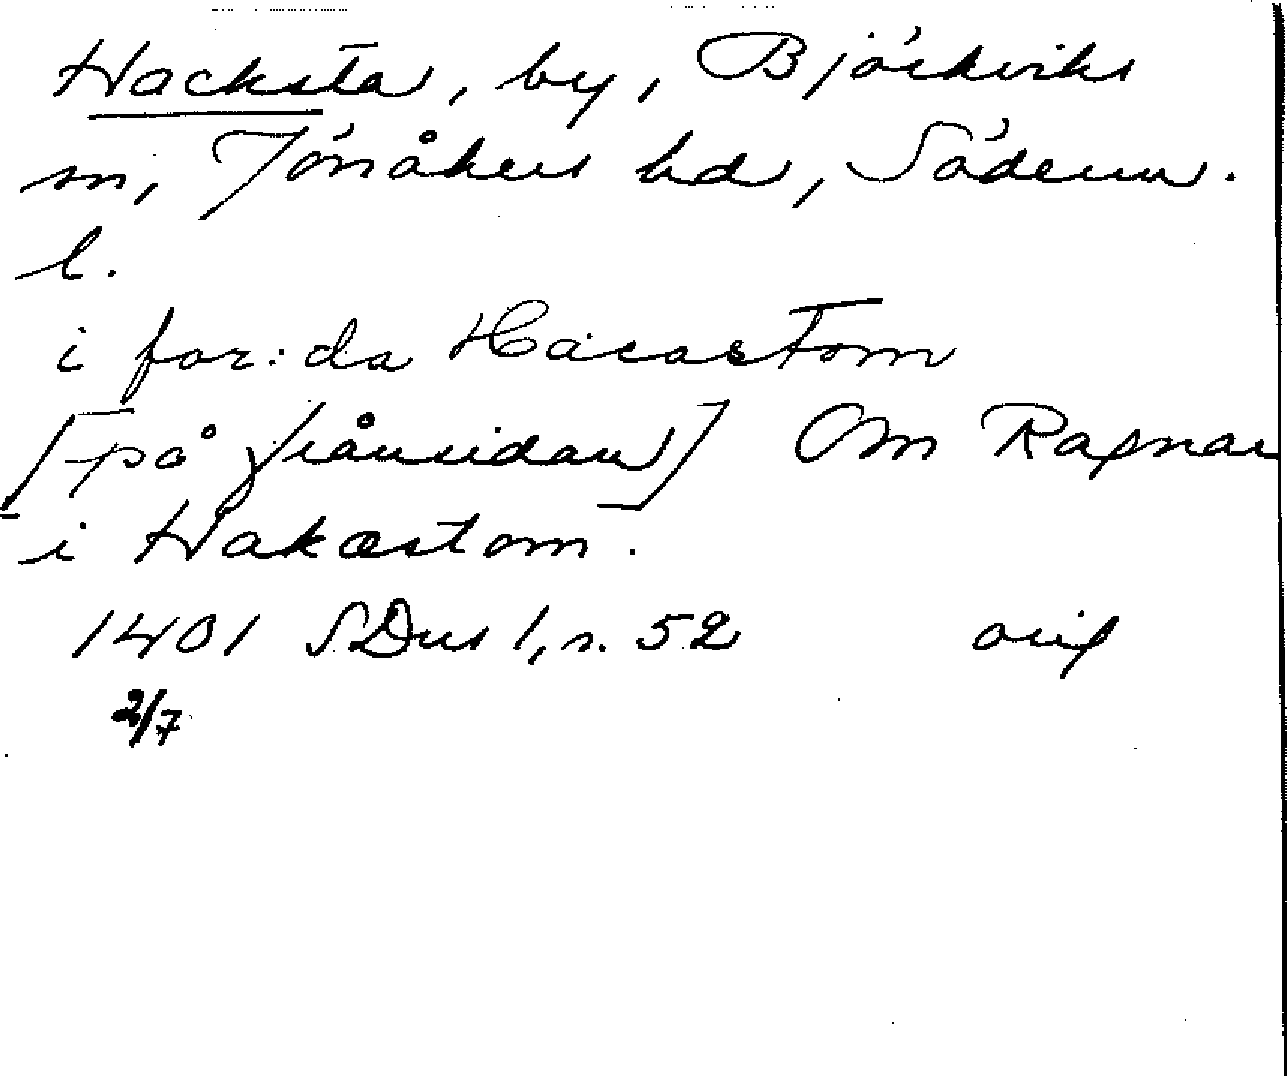 Hacksta, by, Björkviks
sn, Jönåkers hd, Söderm.
l.
i for:da Hacastom
[på frånsidan] Om Ragnar
i Hakæstom.
1401 SDns 1, s. 52 orig
2/7